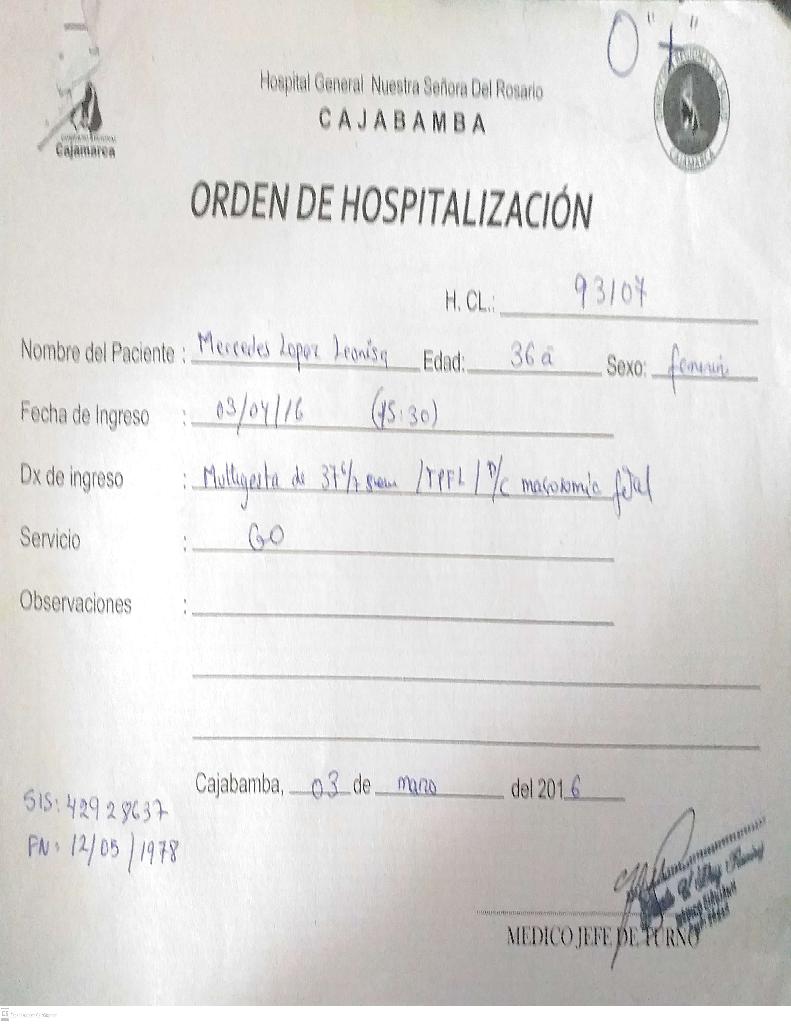 O "+"
Hospital General Nuestra Señora Del Rosario
CAJABAMBA
Cajamarca
CAJAMARCA
ORDEN DE HOSPITALIZACIÓN
H. CL.: 93107
Nombre del Paciente : Mercedes Lopez Leonisa Edad: 36 a Sexo: femenin
Fecha de Ingreso : 03/04/16 (15:30)
Dx de ingreso : Multigesta de 37 6/7 sem / TPFL / D/C macrosomia fetal
Servicio : GO
Observaciones :
Cajabamba, 03 de marzo del 2016
SIS: 42928637
FN: 12/05/1978
MEDICO JEFE DE TURNO